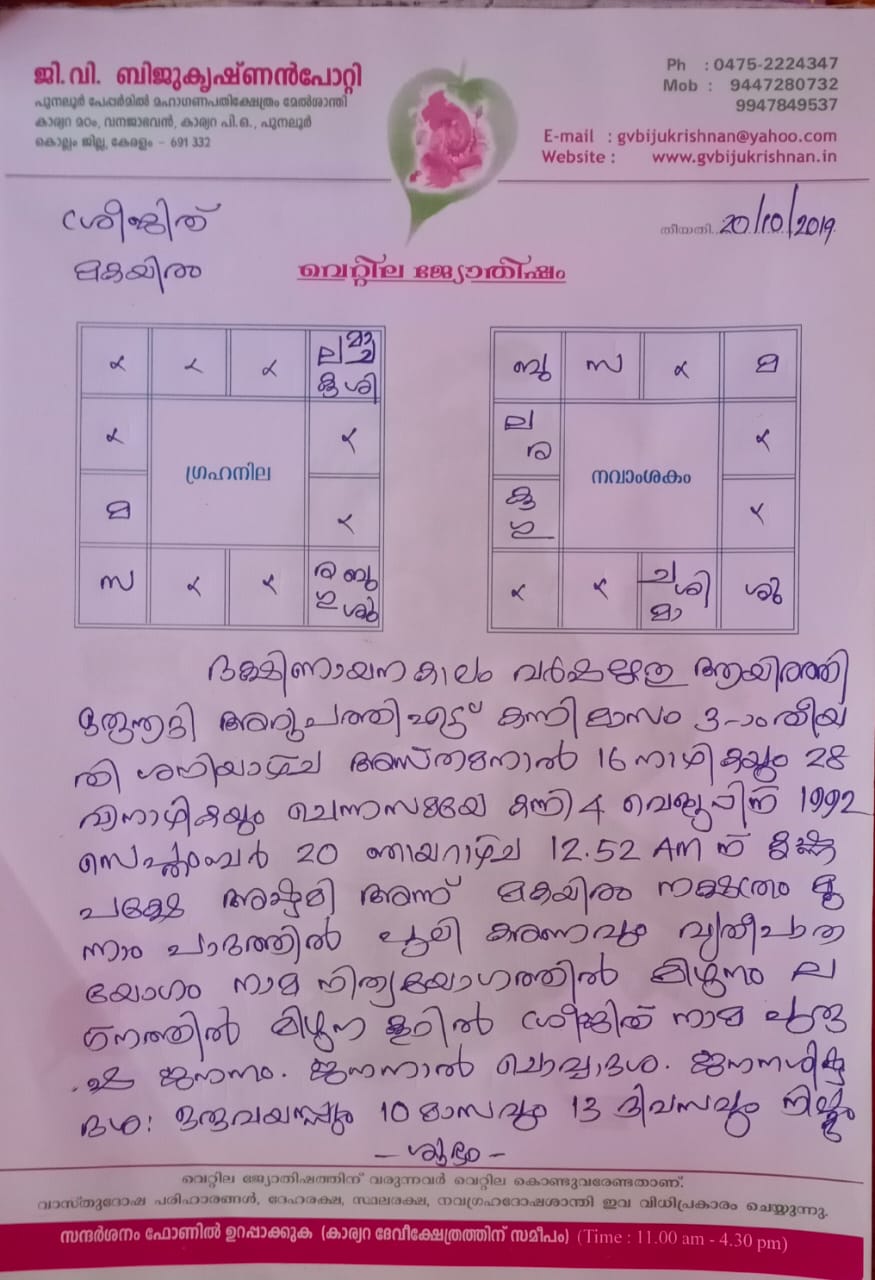 ജി.വി. ബിജുകൃഷ്ണൻപോറ്റി
പുനലൂർ പേപ്പർമിൽ മഹാഗണപതിക്ഷേത്രം മേൽശാന്തി
കാര്യറ മഠം, വനജാഭവൻ, കാര്യറ പി.ഒ., പുനലൂർ
കൊല്ലം ജില്ല, കേരളം - 691 332
Ph : 0475-2224347
Mob : 9447280732
9947849537
E-mail : gvbijukrishnan@yahoo.com
Website : www.gvbijukrishnan.in
ശ്രീജിത് തീയതി. 20/10/2019
മകയിരം
വെറ്റില ജ്യോതിഷം
x x x ല മാ ച
കു ശി
x x
ഗ്രഹനില
മ x
സ x x ര ബു
ഗു ശു
ബു സ x മ
ല
ര x
നവാംശകം
കു
ഗു x
x x ച ശി
മാ ശു
ദക്ഷിണായനകാലം വർഷഋതു ആയിരത്തി
ഒരുനൂറ്റി അറുപത്തി എട്ട് കന്നിമാസം 3-ാം തീയ
തി ശനിയാഴ്ച അസ്തമനാൽ 16 നാഴികയും 28
വിനാഴികയും ചെന്നസമയേ കന്നി 4 വെളുപ്പിന് 1992
സെപ്റ്റംബർ 20 ഞായറാഴ്ച 12.52 AM ന് കൃഷ്ണ
പക്ഷേ അഷ്ടമി അന്ന് മകയിരം നക്ഷത്രം മൂ
ന്നാം പാദത്തിൽ പുലി കരണവും വ്യതീപാത
യോഗം നാമ നിത്യയോഗത്തിൽ മിഥുനം ല
ഗ്നത്തിൽ മിഥുന കൂറിൽ ശ്രീജിത് നാമ പുരു
ഷ ജനനം. ജനനാൽ ചൊവ്വാദശ. ജനനശിഷ്ട
ദശ: ഒരുവയസ്സും 10 മാസവും 13 ദിവസവും നില്പ്പും
- ശുഭം -
വെറ്റില ജ്യോതിഷത്തിന് വരുന്നവർ വെറ്റില കൊണ്ടുവരേണ്ടതാണ്.
വാസ്തുദോഷ പരിഹാരങ്ങൾ, ദേഹരക്ഷ, സ്ഥലരക്ഷ, നവഗ്രഹദോഷശാന്തി ഇവ വിധിപ്രകാരം ചെയ്യുന്നു.
സന്ദർശനം ഫോണിൽ ഉറപ്പാക്കുക (കാര്യറ ദേവീക്ഷേത്രത്തിന് സമീപം) (Time : 11.00 am - 4.30 pm)